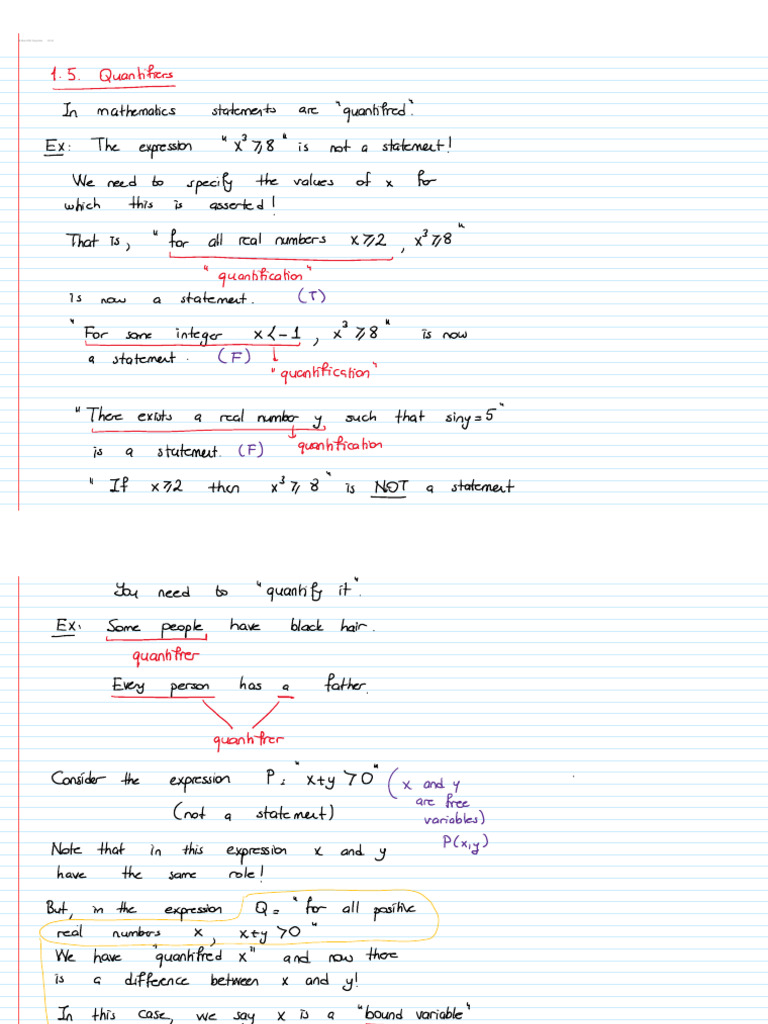 1.5. Quantifiers
In mathematics statements are "quantified".
Ex: The expression "x³ ≥ 8" is not a statement!
We need to specify the values of x for
which this is asserted!
That is, "for all real numbers x ≥ 2, x³ ≥ 8"
"quantification"
is now a statement. (T)
"For some integer x < -1, x³ ≥ 8" is now
a statement. (F)
"quantification"
"There exists a real number y such that sin y = 5"
is a statement. (F) quantification
"If x ≥ 2 then x³ ≥ 8" is NOT a statement
You need to "quantify it".
Ex: Some people have black hair.
quantifier
Every person has a father.
quantifier
Consider the expression P: "x+y > 0" (x and y
are free
(not a statement) variables)
P(x,y)
Note that in this expression x and y
have the same role!
But, in the expression Q = "for all positive
real numbers x, x+y > 0"
We have "quantified x" and now there
is a difference between x and y!
In this case, we say x is a "bound variable"